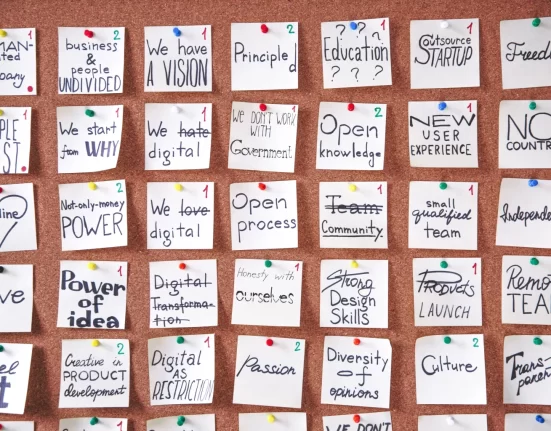 MAN-
ted
pany.
business
&
people
UNDIVIDED
2
We have
A VISION
1
Principled
2
? ? ?
Education
? ? ?
1
Outsource
STARTUP
1
Freed
PLE
ST.
1
We start
from WHY
1
We hate
digital
1
We DON'T WORK
WITH
Government
1
Open
knowledge
2
NEW
USER
EXPERIENCE
1
NO
COUNTR
line
Not-only-money
POWER
2
We love
digital
1
Open
process
2
Team
Community
1
small
qualified
team
1
Independe
ve
Power
of
idea
1
Digital
Transforma-
tion
1
Honesty with
ourselves
1
Strong
Design
Skills
1
Products
LAUNCH
1
Remo
TEA
el
t
Creative in
PRODUCT
development
2
Digital
AS
RESTRICTION
1
Passion
2
Diversity
of
opinions
Culture
2
Trans-
paren
2
1
WE DON'T